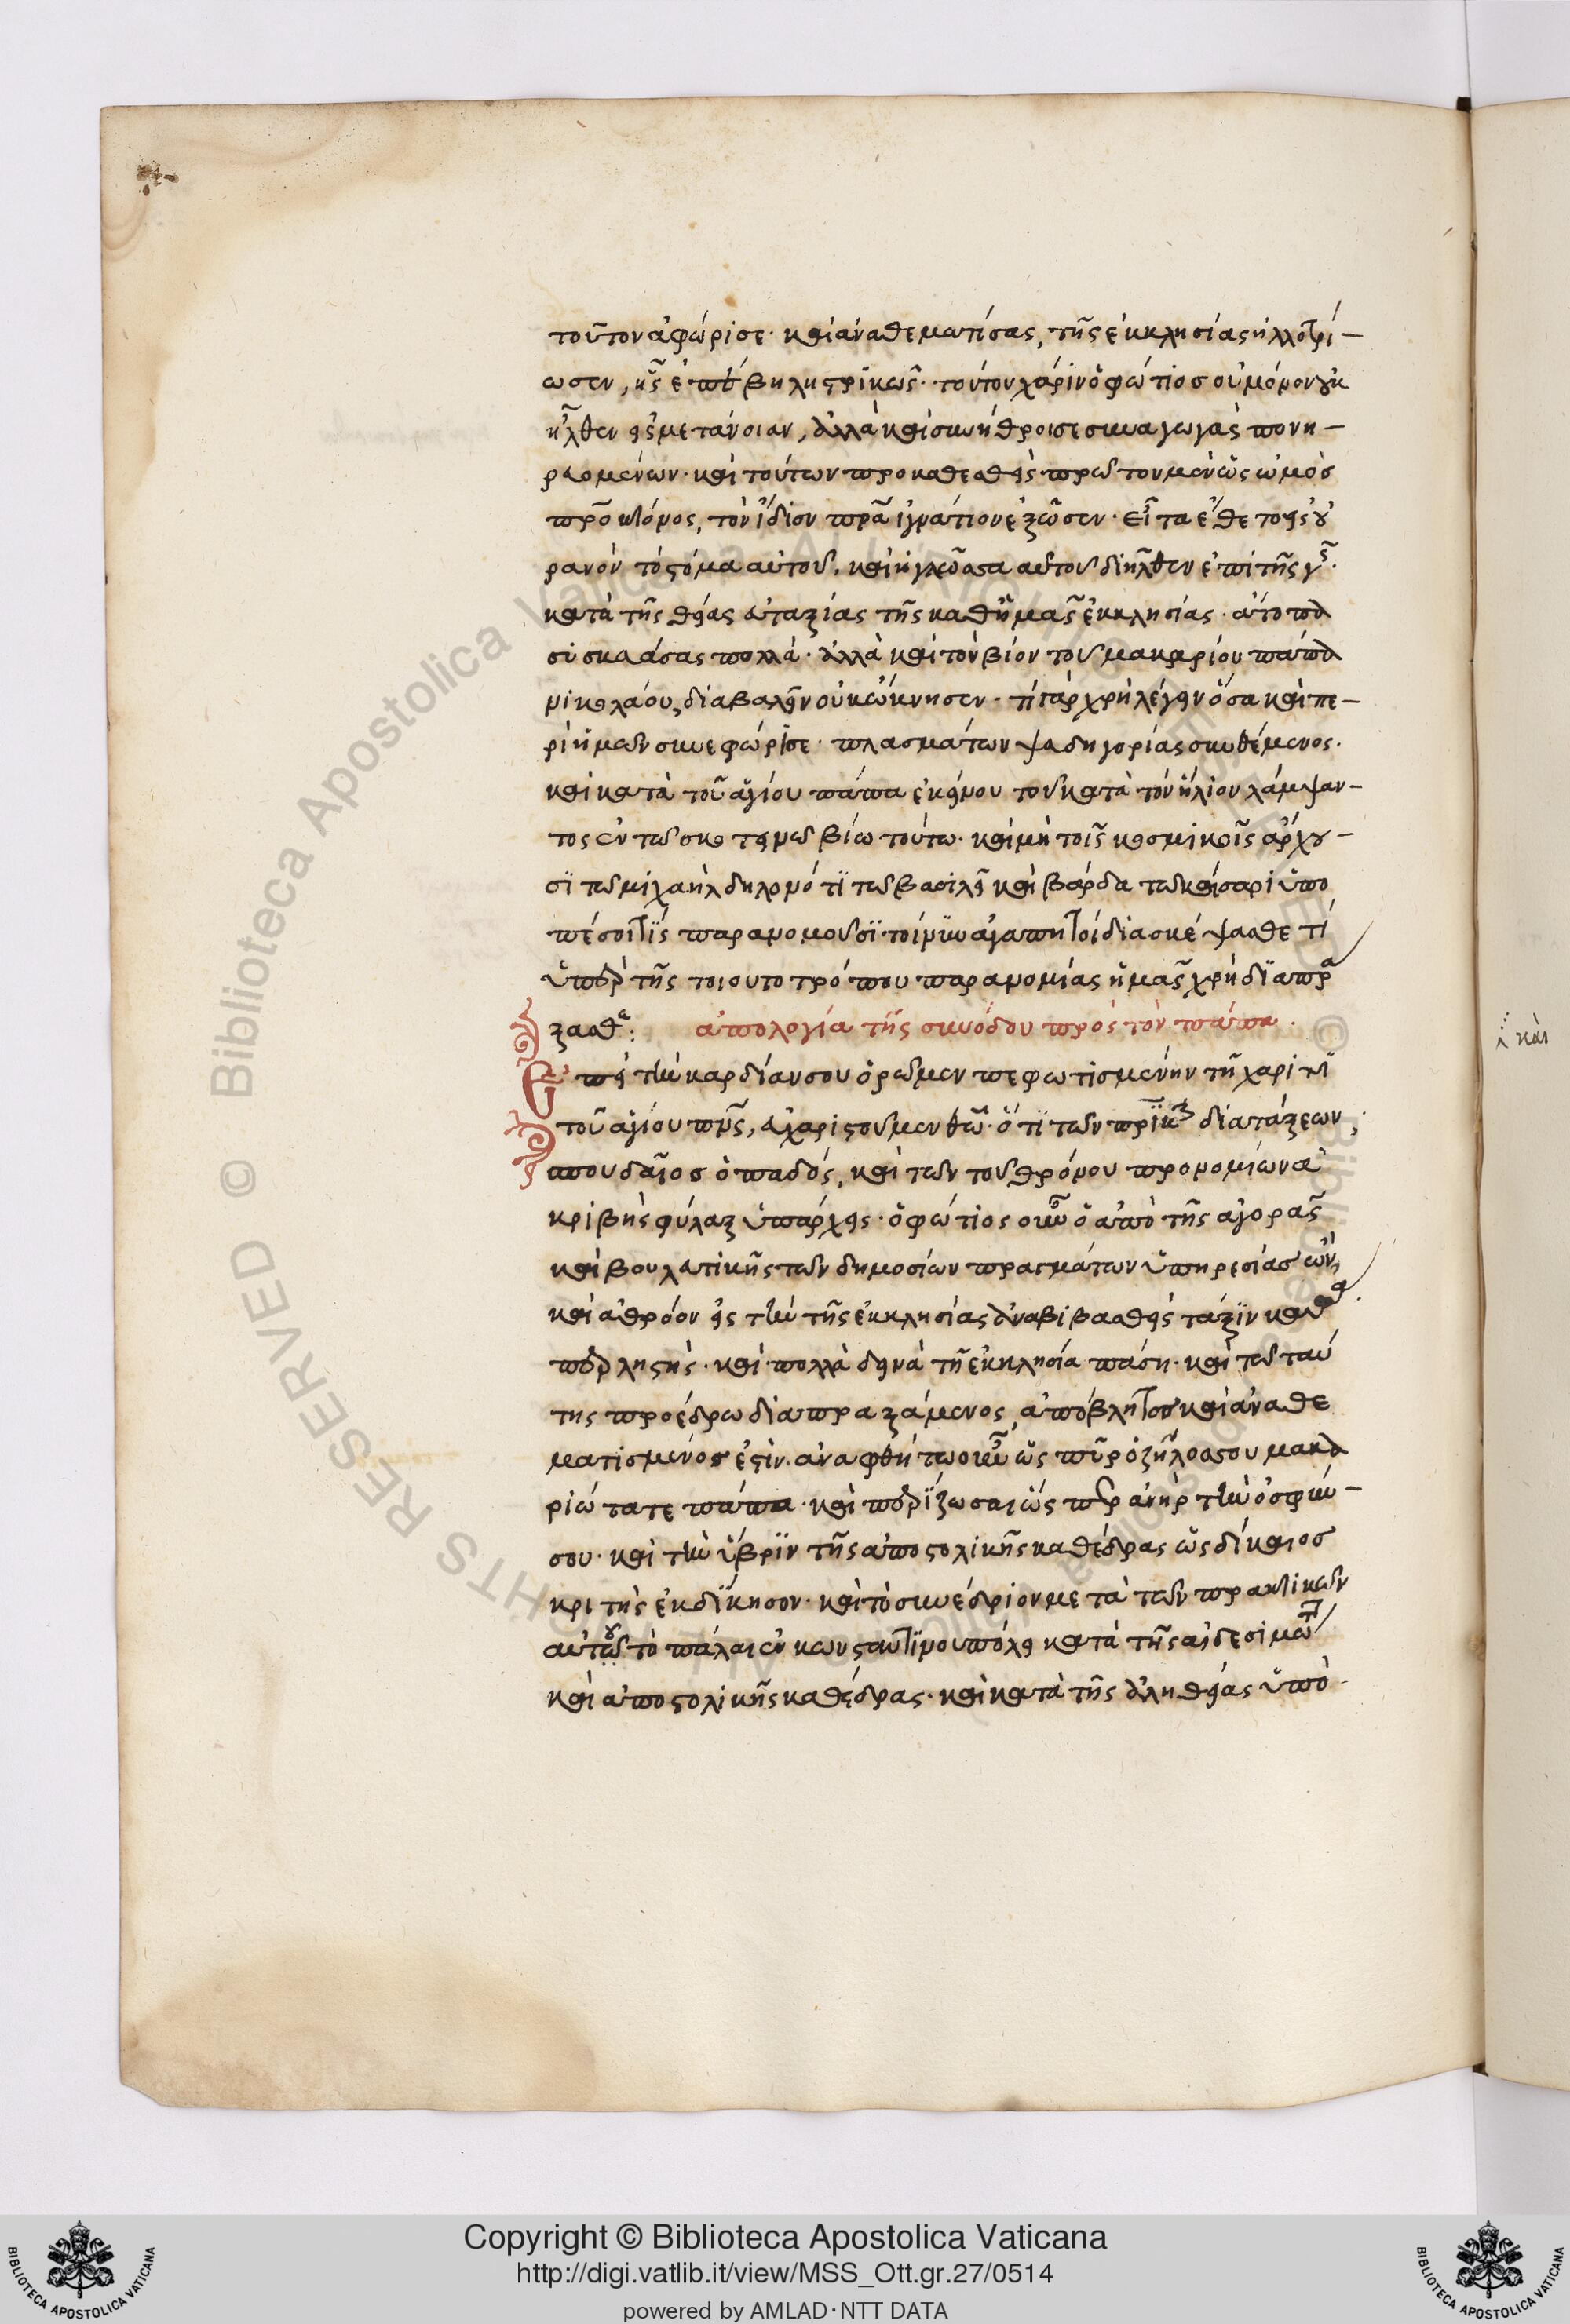 τοῦτον ἀφώρισε· καὶ ἀναθεματίσας, τῆς ἐκκλησίας ἠλλοτρί–
ωσεν, τούτου χάριν ὁ φώτιος οὐ μόνον οὐκ
ἦλθεν εἰς μετάνοιαν, ἀλλὰ καὶ συνήθροισε συναγωγὰς πονη–
ρευομένων· καὶ τούτων προκαθεσθεὶς πρῶτον μὲν ὡς ὠμὸς
τὸν ἴδιον πρα ἰγνάτιον ἐξῶσεν· εἶτα ἔθετο εἰς οὐ
ρανὸν τὸ στόμα αὐτοῦ, καὶ ἡ γλῶσσα αὐτοῦ διῆλθεν ἐπὶ τῆς γῆς·
κατὰ τῆς θείας εὐταξίας τῆς καθ' ἡμᾶς ἐκκλησίας· ἄτοπα
συσκευάσας πολλά· ἀλλὰ καὶ τὸν βίον τοῦ μακαρίου πάπα
νικολάου, διαβαλεῖν οὐκ ὤκνησεν· τί γὰρ χρὴ λέγειν ὅσα καὶ πε–
ρὶ ἡμῶν συνεφώρισε· πλασμάτων ψευδηγορίας συνθέμενος·
καὶ κατὰ τοῦ ἁγίου πάπα ἐκείνου τοῦ κατὰ τὸν ἥλιον λάμψαν–
τος ἐν τῶ σκοτεινῶ βίω τούτω· καὶ μὴ τοῖς κοσμικοῖς ἄρχου–
σι τῶ μιχαὴλ δηλονότι τῶ βασιλεῖ καὶ βάρδα τῶ καίσαρι ὑπο
παρανομοῦσι· τοίνυν ἀγαπητοὶ διασκέψασθε τί
ὑπὲρ τῆς τοιουτοτρόπου παρανομίας ἡμᾶς χρὴ διαπρά
ξασθαι: ἀπολογία τῆς συνόδου πρὸς τὸν πάπα·
Ἐπεὶ τὴν καρδίαν σου ὁρῶμεν πεφωτισμένην τῆ χάριτι
τοῦ ἁγίου πνς, εὐχαριστοῦμεν θῶ· ὅτι τῶν πρικῶν διατάξεων,
σπουδαῖος ὀπαδός, καὶ τῶν τοῦ θρόνου προνομίων ἀ
κριβὴς φύλαξ ὑπάρχεις· ὁ φώτιος οὖν ὁ ἀπὸ τῆς ἀγορᾶς
καὶ βουλευτικῆς τῶν δημοσίων πραγμάτων ὑπηρεσίας ὤν,
καὶ ἀθρόον εἰς τὴν τῆς ἐκκλησίας ἀναβιβασθεὶς τάξιν καθὰ
ληστής· καὶ πολλὰ δεινὰ τῆ ἐκκλησία πάση· καὶ τῶ ταύ
της προέδρω διαπραξάμενος, ἀπόβλητος καὶ ἀναθε
ματισμένος ἐστίν· ἀναφθήτω οὖν ὡς πῦρ ὁ ζῆλος σου μακα
ριώτατε πάπα· καὶ περίζωσαι ὥσπερ ἀνὴρ τὴν ὀσφύν–
σου· καὶ τὴν ὕβριν τῆς ἀποστολικῆς καθέδρας ὡς δίκαιος
κριτὴς ἐκδίκησον· καὶ τὸ συνέδριον μετὰ τῶν πρακτικῶν
αὐτοῦ τὸ πάλαι ἐν κωνσταντίνου πόλει κατὰ τῆς αἰδεσίμου
καὶ ἀποστολικῆς καθέδρας· καὶ κατὰ τῆς ἀληθείας ὑπὸ
καὶ
Copyright © Biblioteca Apostolica Vaticana
http://digi.vatlib.it/view/MSS_Ott.gr.27/0514
powered by AMLAD·NTT DATA
BIBLIOTECA APOSTOLICA VATICANA
BIBLIOTECA APOSTOLICA VATICANA